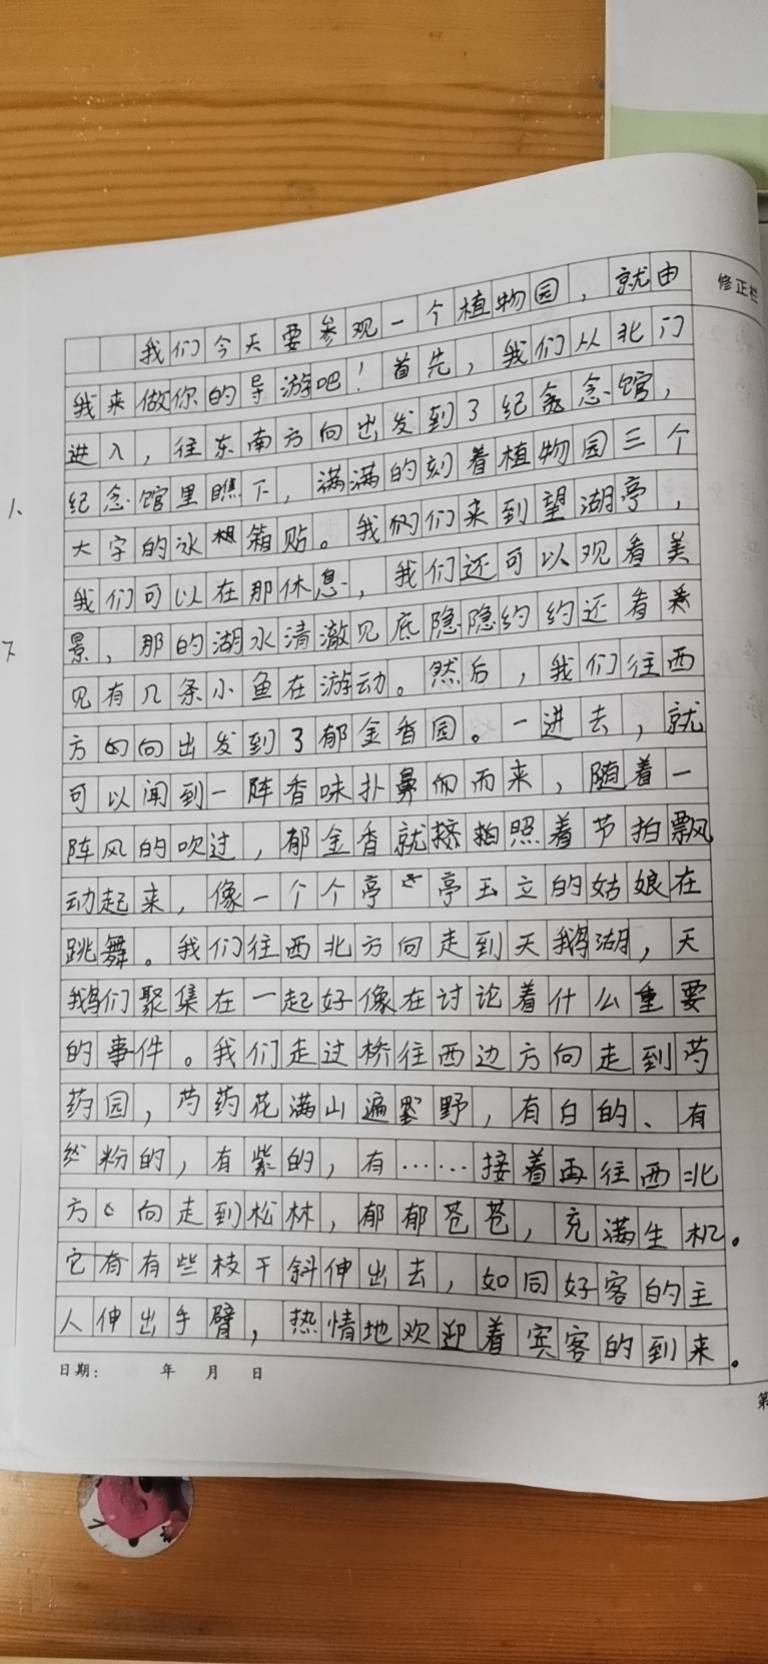 修正栏
我们今天要参观一个植物园，就由
我来做你的导游吧！首先，我们从北门
进入，往东南方向出发到了纪念馆，
纪念馆里瞧下，满满的刻着植物园三个
大字的冰箱贴。我们来到望湖亭，
我们可以在那休息，我们还可以观看美
景，那的湖水清澈见底隐隐约约还看
见有几条小鱼在游动。然后，我们往西
方向出发到了郁金香园。一进去，就
可以闻到一阵香味扑鼻而来，随着一
阵风的吹过，郁金香就照着节拍飘
动起来，像一个个亭亭玉立的姑娘在
跳舞。我们往西北方向走到天鹅湖，天
鹅们聚集在一起好像在讨论着什么重要
的事件。我们走过桥往西边方向走到芍
药园，芍药花满山遍野，有白的、有
粉的，有紫的，有……接着再往西北
方向走到松林，郁郁苍苍，充满生机。
它有些枝干斜伸出去，如同好客的主
人伸出手臂，热情地欢迎着宾客的到来。
日期： 年 月 日
第